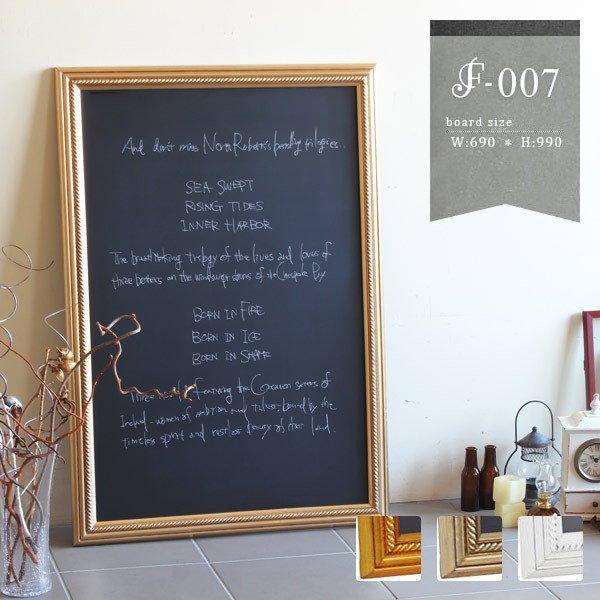 F-007
board size
W:690 * H:990
And don't miss Nora Roberts's trilogies.
SEA SWEPT
RISING TIDES
INNER HARBOR
The trilogy of the lives and loves of
three brothers on the windswept shores of the Chesapeake Bay
BORN IN FIRE
BORN IN ICE
BORN IN SHAME
Three the Concannon sisters of
Ireland - women of ambition and talent, bound by the
timeless spirit and restless beauty of their land.